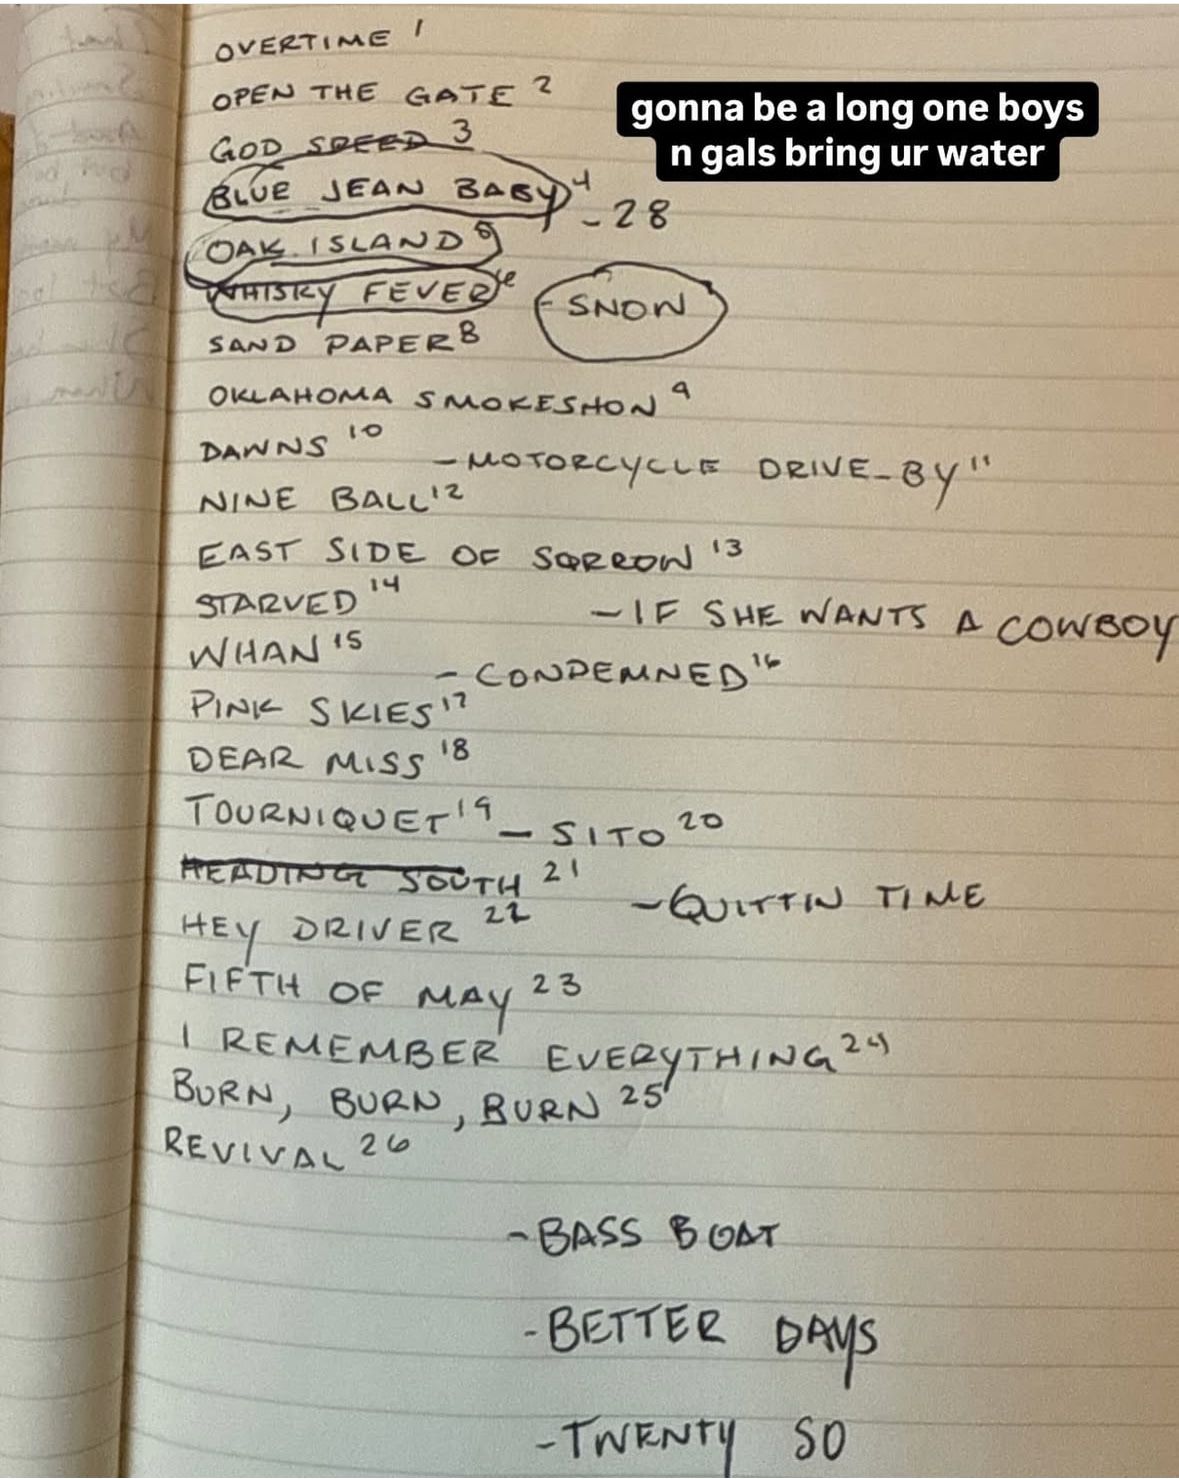 OVERTIME 1
OPEN THE GATE 2
gonna be a long one boys
n gals bring ur water
GOD SPEED 3
BLUE JEAN BABY 4
- 28
OAK ISLAND 5
WHISKY FEVER 6
- SNOW
SAND PAPER 8
OKLAHOMA SMOKESHON 9
DAWNS 10
- MOTORCYCLE DRIVE-BY 11
NINE BALL 12
EAST SIDE OF SORROW 13
STARVED 14
- IF SHE WANTS A COWBOY
WHAN 15
- CONDEMNED 16
PINK SKIES 17
DEAR MISS 18
TOURNIQUET 19 - SITO 20
HEADING SOUTH 21
- QUITTIN TIME
HEY DRIVER 22
FIFTH OF MAY 23
I REMEMBER EVERYTHING 24
BURN, BURN, BURN 25
REVIVAL 26
- BASS BOAT
- BETTER DAYS
- TWENTY SO